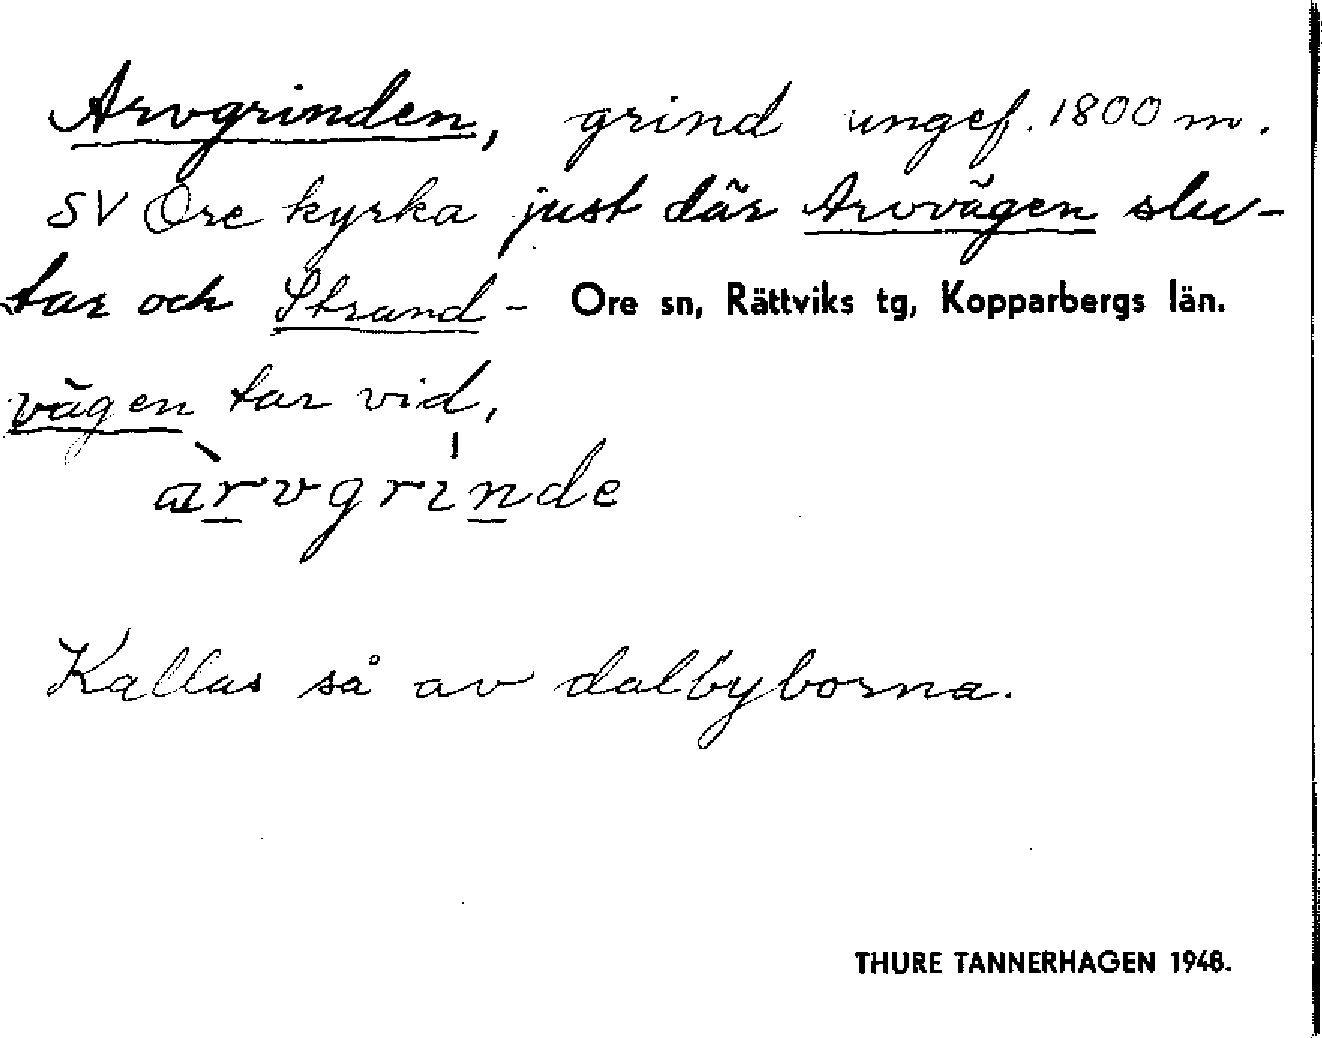 Arvgrinden, grind ungef. 1800 m.
SV Ore kyrka just där Arvvägen slu-
tar och Strand- Ore sn, Rättviks tg, Kopparbergs län.
vägen tar vid,
àrvgrinde
Kallas så av dalbyborna.
THURE TANNERHAGEN 1948.